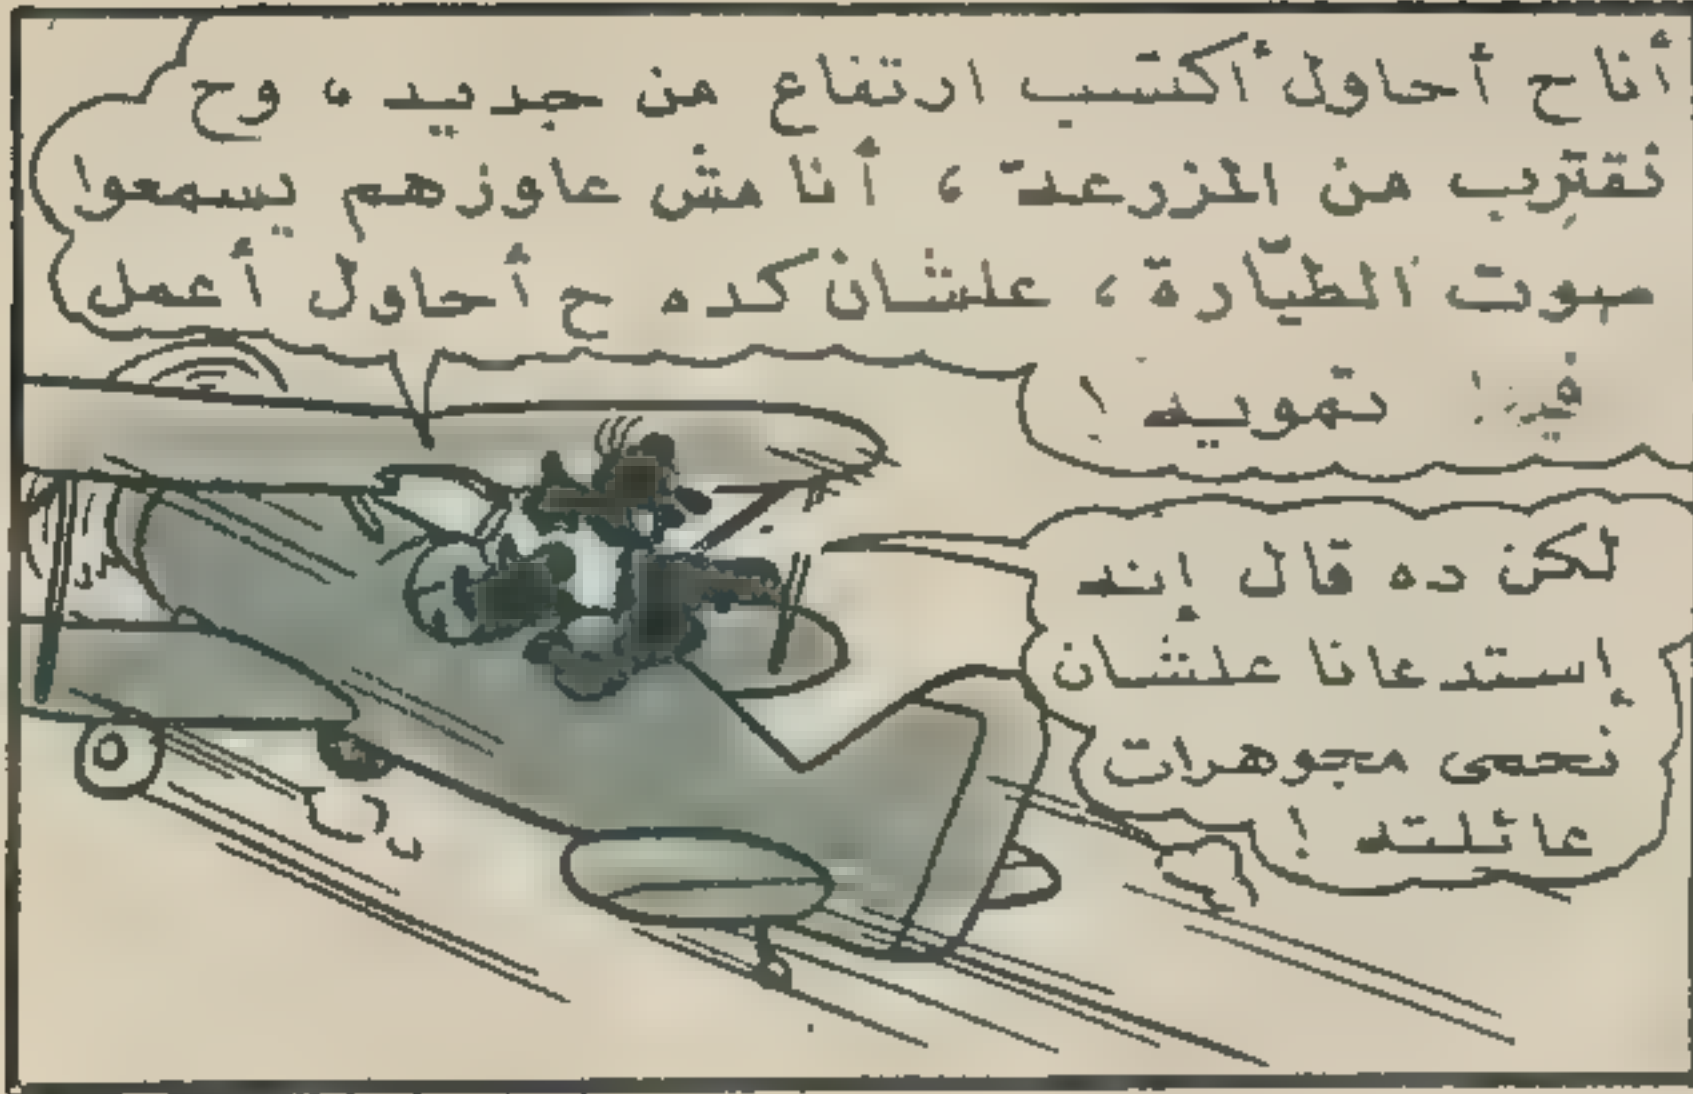 أنا ح أحاول أكتسب ارتفاع من جديد ، وح
نقترب من المزرعة ، أنا مش عاوزهم يسمعوا
صوت الطيّارة ، علشان كده ح أحاول أعمل
فيها تمويه !
لكن ده قال إنه
إستدعانا علشان
نحمى مجوهرات
عائلته !